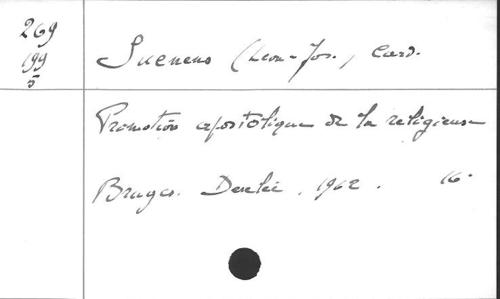 269
199
5
Suenens (Leon-Jos., Card.
Promotion apostolique de la religieuse
Bruges. Desclée, 1962. 16°